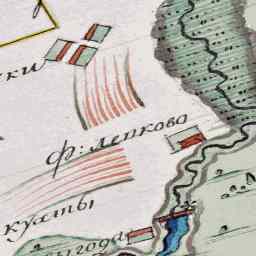 ки
ф: лепково
кухты
ыгода